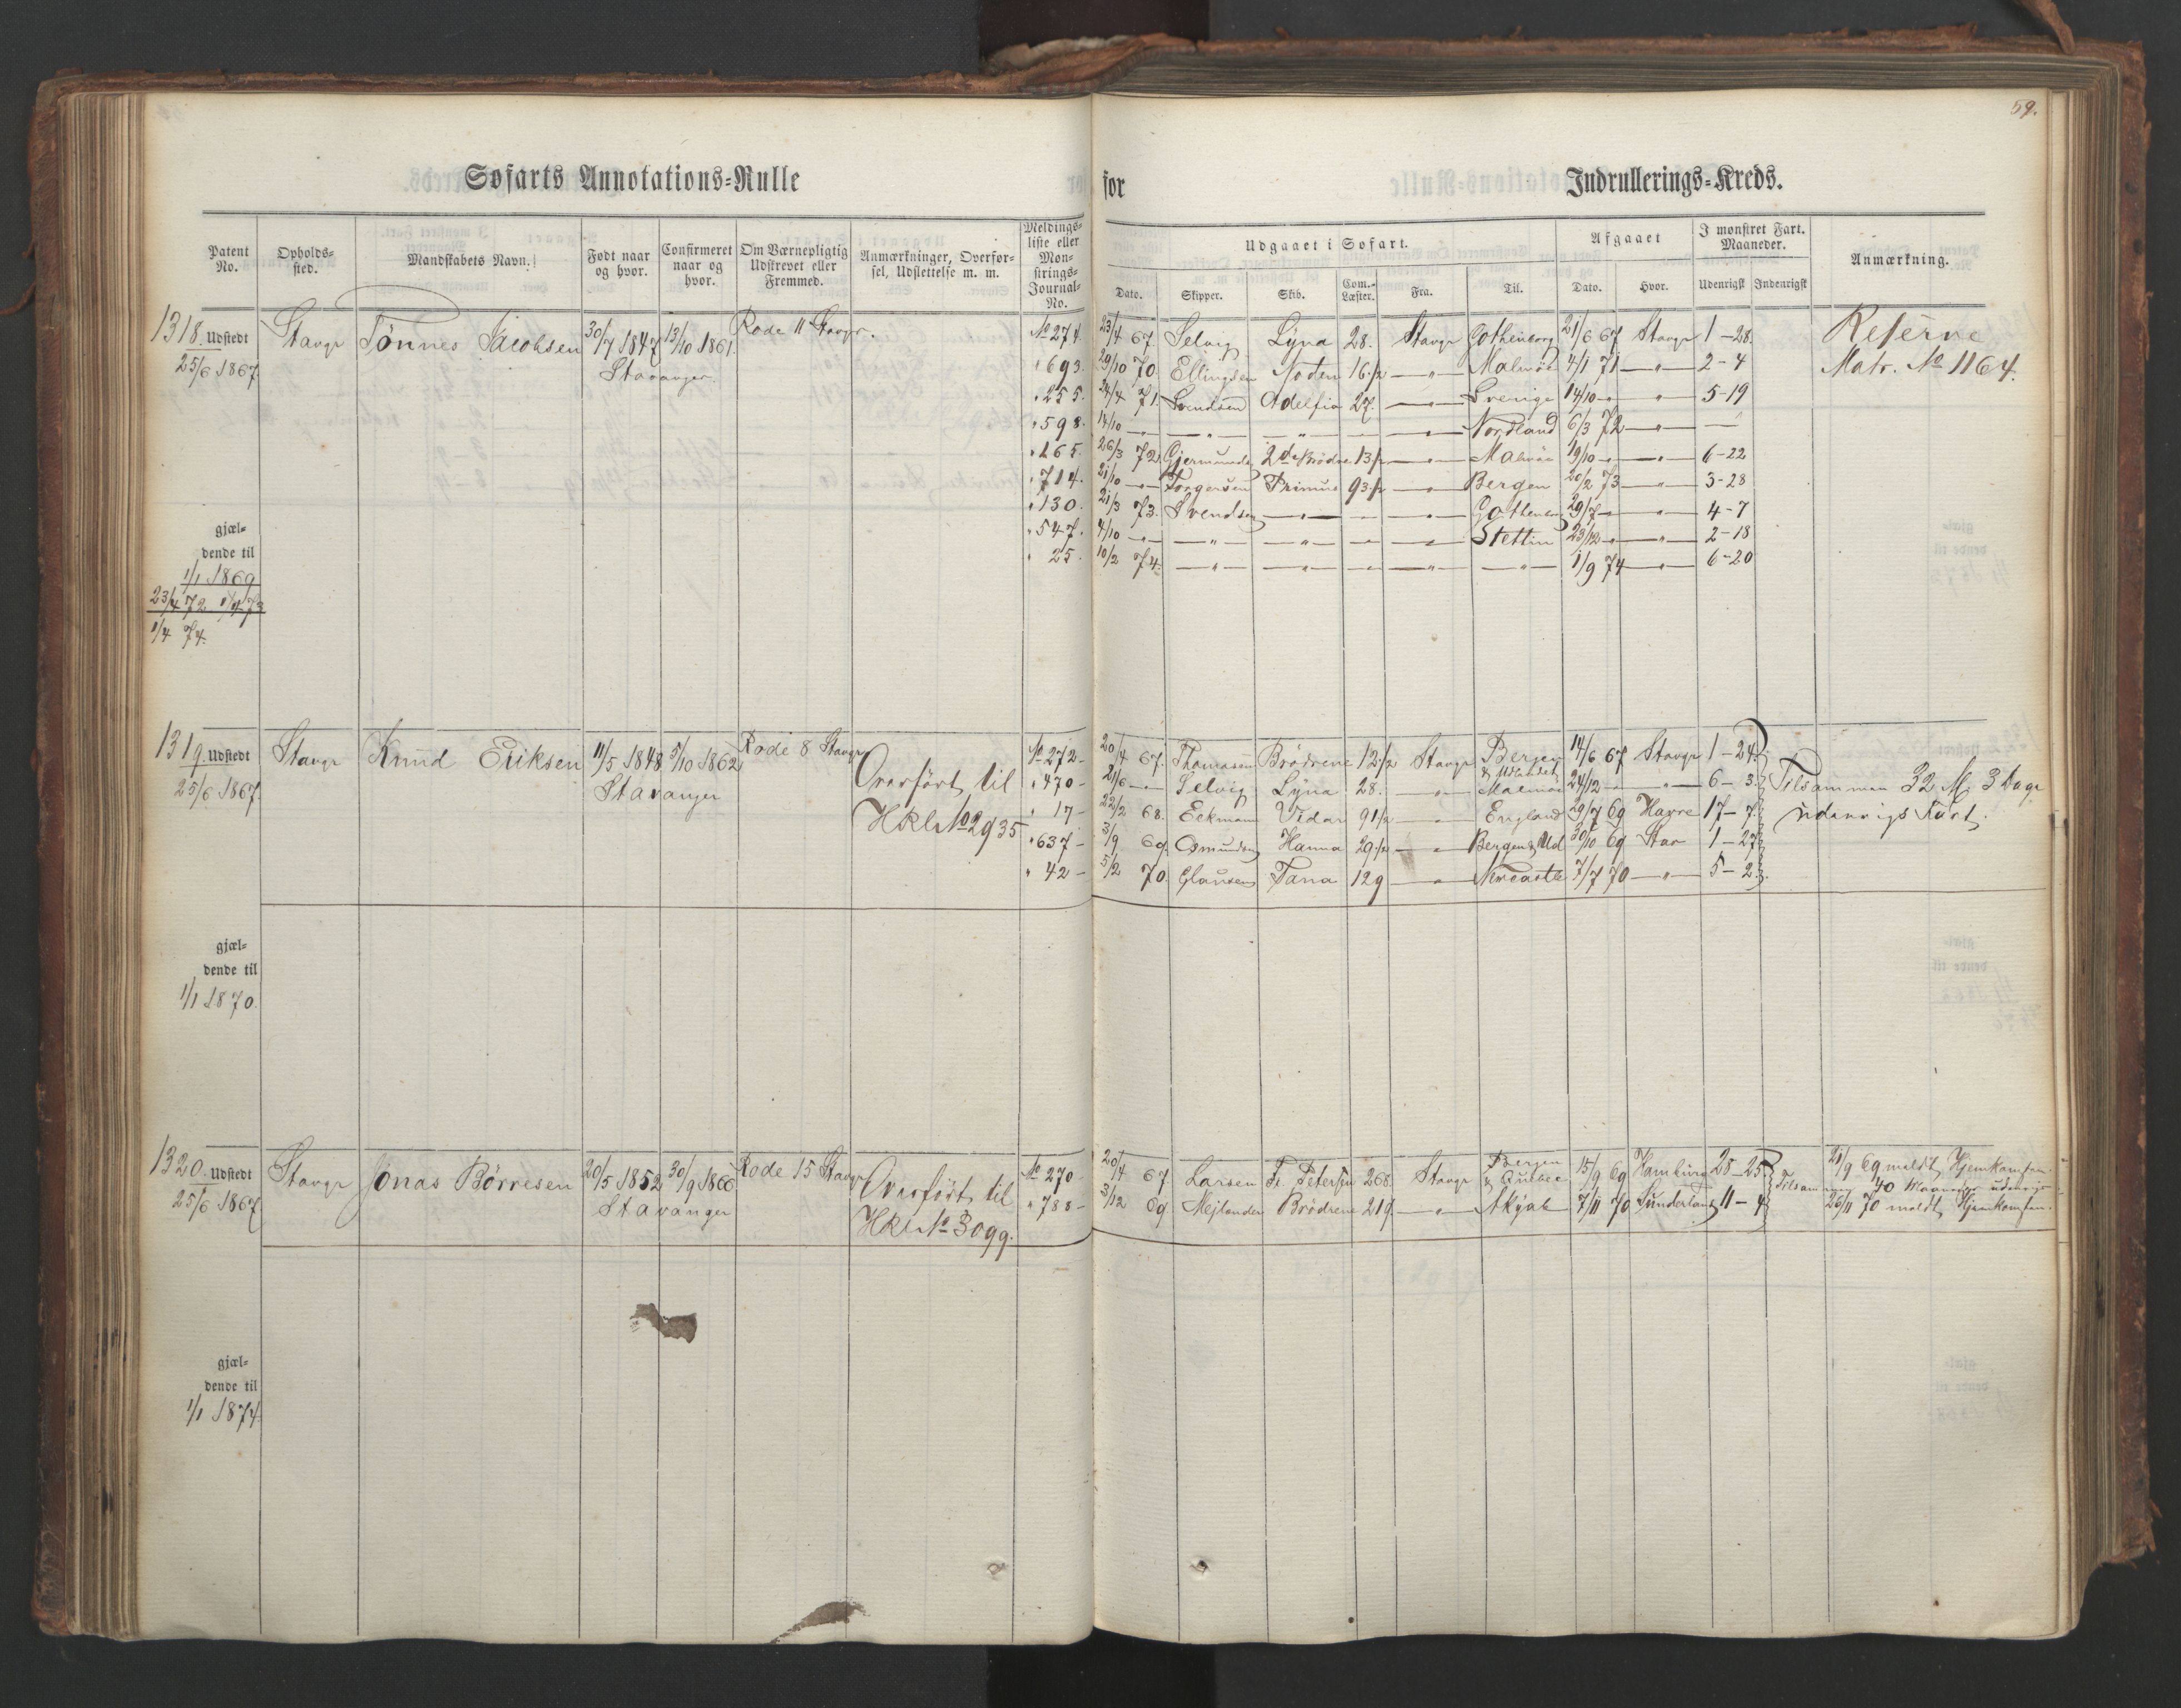 59.
Søfarts Annotations=Rulle for Indrullerings=Kreds.
Patent No. | Opholds=sted. | Mandskabets Navn. | Født naar og hvor. | Confirmeret naar og hvor. | Om Værnepligtig Udskrevet eller Fremmed. | Anmærkninger, Overførsel, Udslettelse m. m. | Meldings=liste eller Mønstrings=Journal=No. | Udgaaet i Søfart. Dato. | Skipper. | Skib. | Com.=Læster. | Fra. | Til. | Afgaaet Dato. | Hvor. | I mønstret Fart. Maaneder. Udenrigsk | Indenrigsk | Anmærkning.
1318. Udstedt 25/6 1867 | Stavgr | Tønnes Jacobsen | 30/7 1847 Stavanger | 13/10 1861. | Rode 11 Stavgr. | No 274. | 23/4 67. | Selvig | Lyna | 28. | Stavgr | Gothenborg | 21/6 67 | Stavgr | 1-28. | Reserve Matr. No 1164.
" 693. | 29/10 70. | Ellingsen | Noden | 16 1/2 | — " — | Malmöe | 4/1 71 | — " — | 2-4
" 255. | 24/4 71. | Svendsen | Adelfia | 27. | — " — | Sverige | 14/10 — | " — | 5-19
" 598. | 14/10 — | — " — | — " — | — | — " — | Nordland | 6/3 72 | — " — | —
" 165. | 26/3 72. | Gjermunds | 2de Brødre | 13 1/2 | — " — | Malmöe | 19/10 — | — " — | 6-22
" 714. | 21/10 — | Torgersen | Primus | 93 1/2 | — " — | Bergen | 20/2 73 | — " — | 3-28
" 130. | 21/3 73. | Svendsen | — " — | — | — " — | Gothenb | 29/7 — | — " — | 4-7
" 547. | 4/10 — | — " — | — " — | — | — " — | Stettin | 23/12 — | — " — | 2-18
" 25. | 10/2 74. | — " — | — " — | — | — " — | — " — | 1/9 74 | — " — | 6-20
gjæl=
dende til
1/1 1869
23/4 72 1/4 73
1/4 74.
1319. Udstedt 25/6 1867. | Stavgr | Knud Eriksen | 11/5 1848 Stavanger | 5/10 1862 | Rode 8 Stavgr | Overført til HKl No 2935 | No 272 - | 20/4 67. | Thomasen | Brødrene | 12 1/2 | Stavgr | Bergen & Udlandet | 14/6 67 | Stavgr | 1-24. | Tilsammen 32 M. 3 Dage udenrigs Fart.
" 470 - | 21/6 — | Selvig | Lyna | 28. | — " — | Malmöe | 24/12 — | — " — | 6-3.
" 17 - | 22/2 68. | Eckmann | Vidar | 91/2 | — " — | England | 29/7 69 | Havre | 17-7.
" 637 - | 3/9 69. | Osmundsen | Hanna | 29 1/2 | — " | Bergen & Ud | 30/10 69 | Stav | 1-27.
" 42 - | 5/2 70. | Clausen | Tana | 129 | — " — | Newcastle | 7/7 70 | — " — | 5-2.
gjæl=
dende til
1/1 1870.
1320. Udstedt 25/6 1867 | Stavgr | Jonas Børresen | 20/5 1852 Stavanger | 30/9 1866 | Rode 15 Stavgr | Overført til HKl No 3099. | No 270 - | 20/4 67. | Larsen | Fr. Petersen | 268. | Stavgr | Bergen & Quebec | 15/9 69 | Hamburg | 28-25 | 21/9 69 meldt Hjemkomsten.
Tilsammen 40 Maaneder udenrigs
" 788 - | 3/12 69 | Mejlander | Brødrene | 219 | — " — | Akyab | 7/11 70 | Sunderland | 11-4 | 26/11 70 meldt Hjemkomsten.
gjæl=
dende til
1/1 1874.